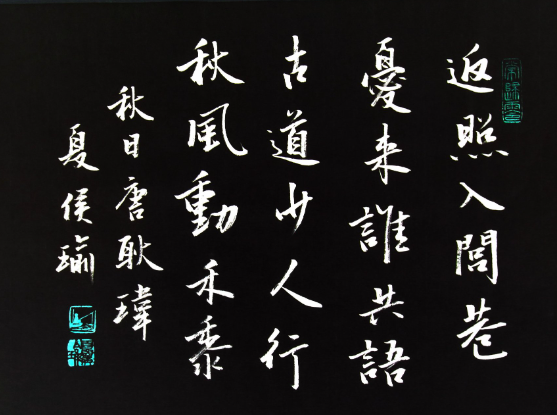 返照入閭巷
憂来誰共語
古道少人行
秋風動禾黍
秋日唐耿瑋
夏侯瑜